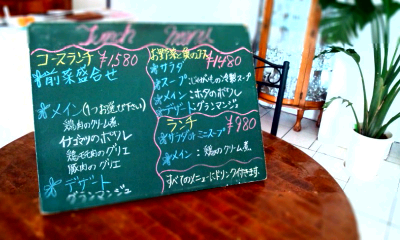 Lunch menu
コースランチ ¥1580
前菜盛合せ
メイン(1つお選び下さい)
鶏肉のクリーム煮
イサゴマリのポワレ
鶏モモ肉のグリエ
豚肉のグリエ
デザート
グランマンジュ
お野菜と魚の ¥1480
サラダ
スープ:じゃがいもの冷製スープ
メイン:ホタテのポワレ
デザート:グランマンジュ
ランチ ¥980
サラダorミニスープ
メイン:鶏肉のクリーム煮
すべてのメニューにドリンク付きます。